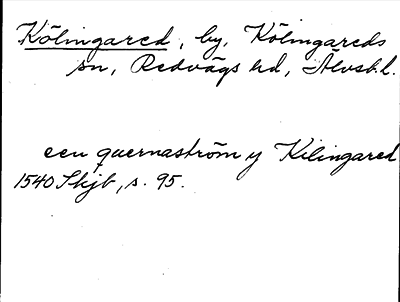 Kölingared, by, Kölingareds
sn, Redvägs hd, Älvsb.l.
een quernaström y Kilingared
1540 Skjb, s. 95.